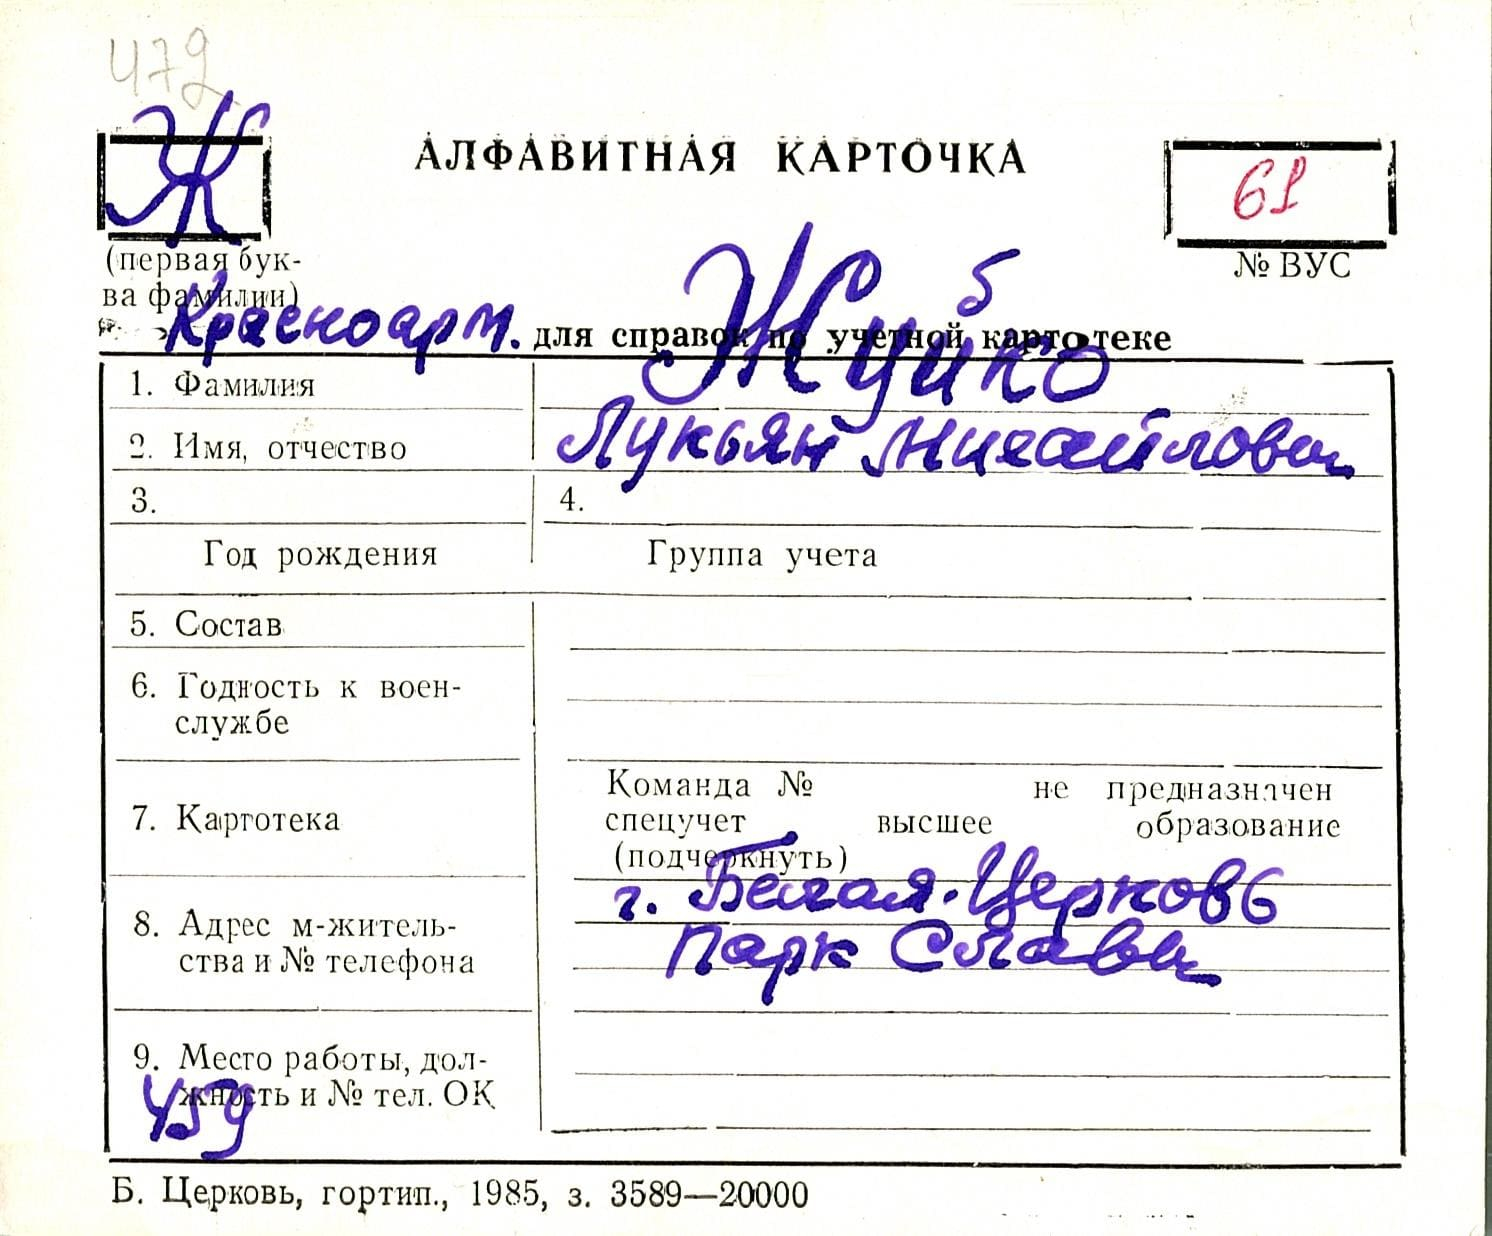 472
Ж
АЛФАВИТНАЯ КАРТОЧКА
61
(первая бук-
ва фамилии)
№ ВУС
Красноарм. для справок по учетной картотеке
1. Фамилия
Жуйко
б
2. Имя, отчество
Лукьян Михайлович
3.
4.
Год рождения
Группа учета
5. Состав
6. Годность к воен-
службе
7. Картотека
Команда № не предназначен
спецучет высшее образование
(подчеркнуть)
8. Адрес м-житель-
ства и № телефона
г. Белая-Церковь
Парк Славы
9. Место работы, дол-
жность и № тел. ОК
459
Б. Церковь, гортип., 1985, з. 3589—20000